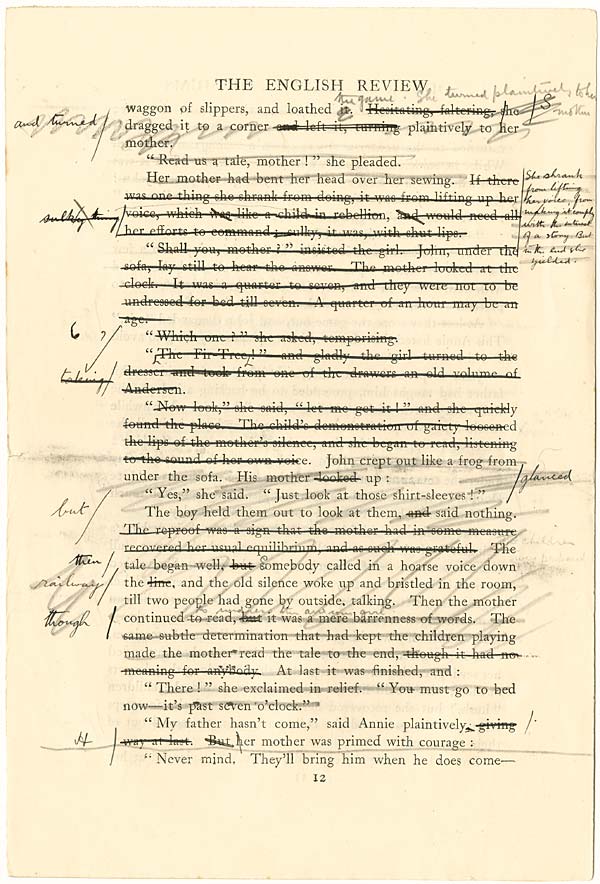 THE ENGLISH REVIEW
the game. She turned plaintively to her
mother
waggon of slippers, and loathed it. Hesitating, faltering, she
and turned
dragged it to a corner and left it, turning plaintively to her
mother.
“Read us a tale, mother!” she pleaded.
Her mother had bent her head over her sewing. If there
She shrank
from lifting
her voice, from
making it comply
with the interest
of a story. But
in the end she
yielded.
was one thing she shrank from doing, it was from lifting up her
sulky thing
voice, which was like a child in rebellion, and would need all
her efforts to command; sulky, it was, with shut lips.
“Shall you, mother?” insisted the girl. John, under the
sofa, lay still to hear the answer. The mother looked at the
clock. It was a quarter to seven, and they were not to be
undressed for bed till seven. A quarter of an hour may be an
age.
“Which one?” she asked, temporising.
6 ?
“The Fir-Tree!” and gladly the girl turned to the
taking
dresser and took from one of the drawers an old volume of
Andersen.
“Now look,” she said, “let me get it!” and she quickly
found the place. The child's demonstration of gaiety loosened
the lips of the mother's silence, and she began to read, listening
to the sound of her own voice. John crept out like a frog from
under the sofa. His mother looked up:
glanced
“Yes,” she said. “Just look at those shirt-sleeves!”
but
The boy held them out to look at them, and said nothing.
The reproof was a sign that the mother had in some measure
recovered her usual equilibrium, and as such was grateful. The
then
tale began well, but somebody called in a hoarse voice down
railway
the line, and the old silence woke up and bristled in the room,
till two people had gone by outside, talking. Then the mother
though
continued to read, but it was a mere barrenness of words. The
same subtle determination that had kept the children playing
made the mother read the tale to the end, though it had no
meaning for anybody. At last it was finished, and:
“There!” she exclaimed in relief. “You must go to bed
now—it's past seven o'clock.”
“My father hasn't come,” said Annie plaintively, giving
H
way at last. But her mother was primed with courage:
“Never mind. They'll bring him when he does come—
12